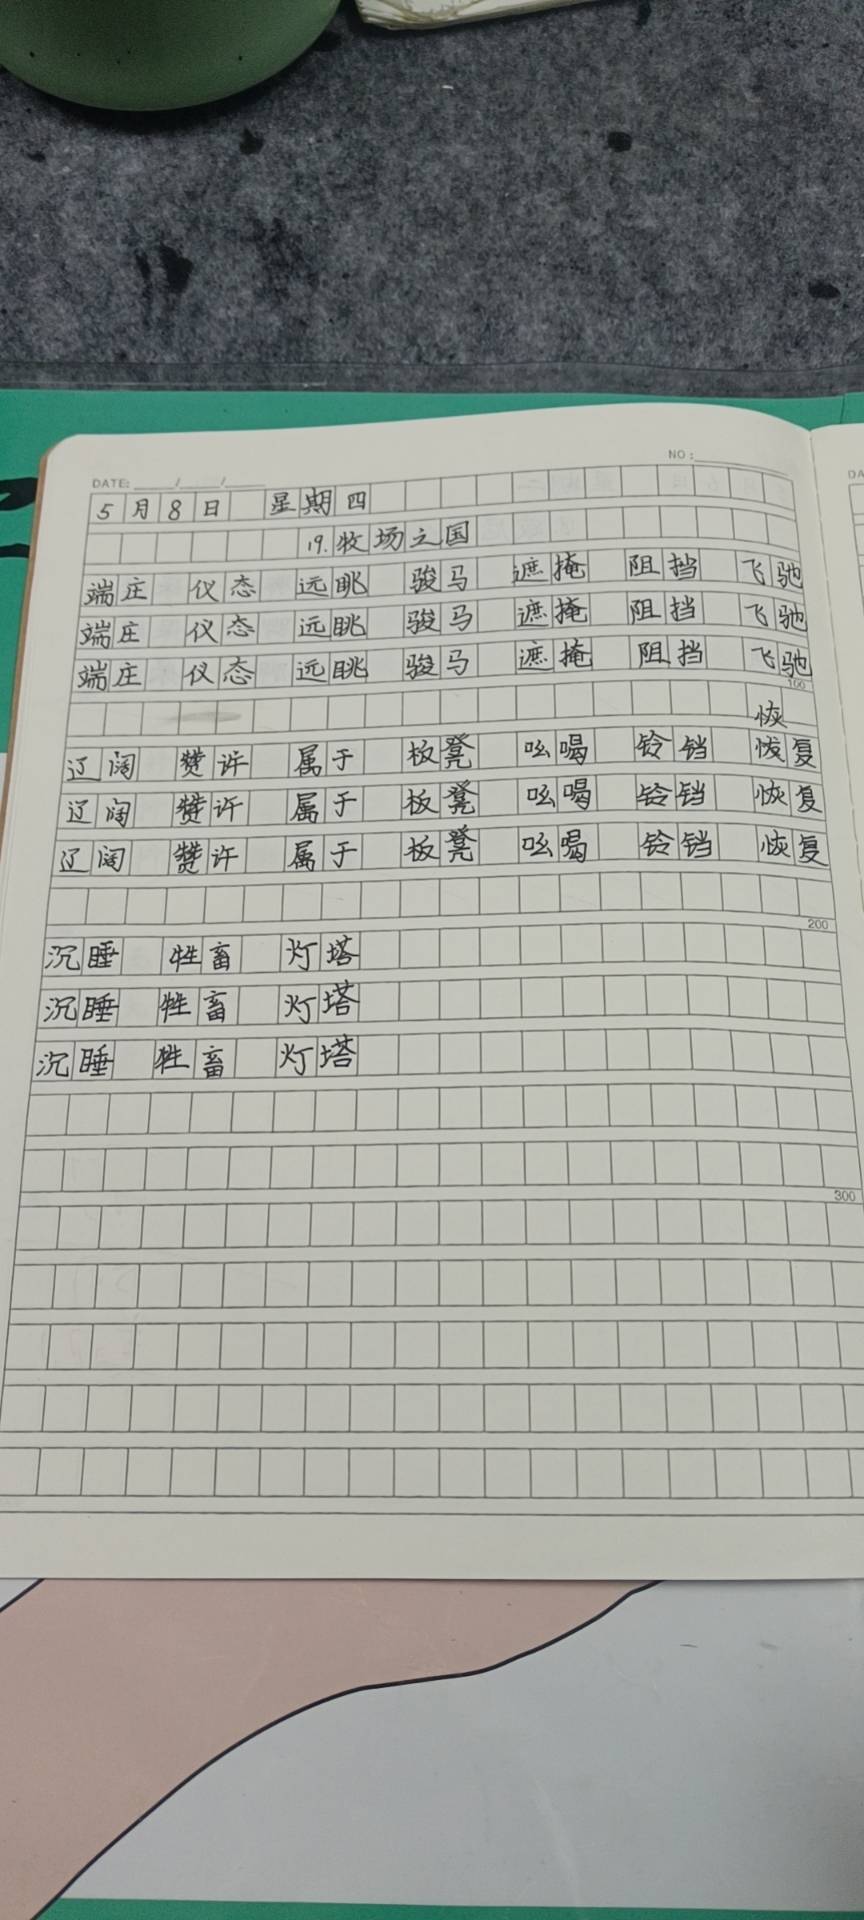 NO:
DATE: / /
DA
5月8日 星期四
19.牧场之国
端庄 仪态 远眺 骏马 遮掩 阻挡 飞驰
端庄 仪态 远眺 骏马 遮掩 阻挡 飞驰
端庄 仪态 远眺 骏马 遮掩 阻挡 飞驰
100
恢
辽阔 赞许 属于 板凳 吆喝 铃铛 恢复
辽阔 赞许 属于 板凳 吆喝 铃铛 恢复
辽阔 赞许 属于 板凳 吆喝 铃铛 恢复
200
沉睡 牲畜 灯塔
沉睡 牲畜 灯塔
沉睡 牲畜 灯塔
300